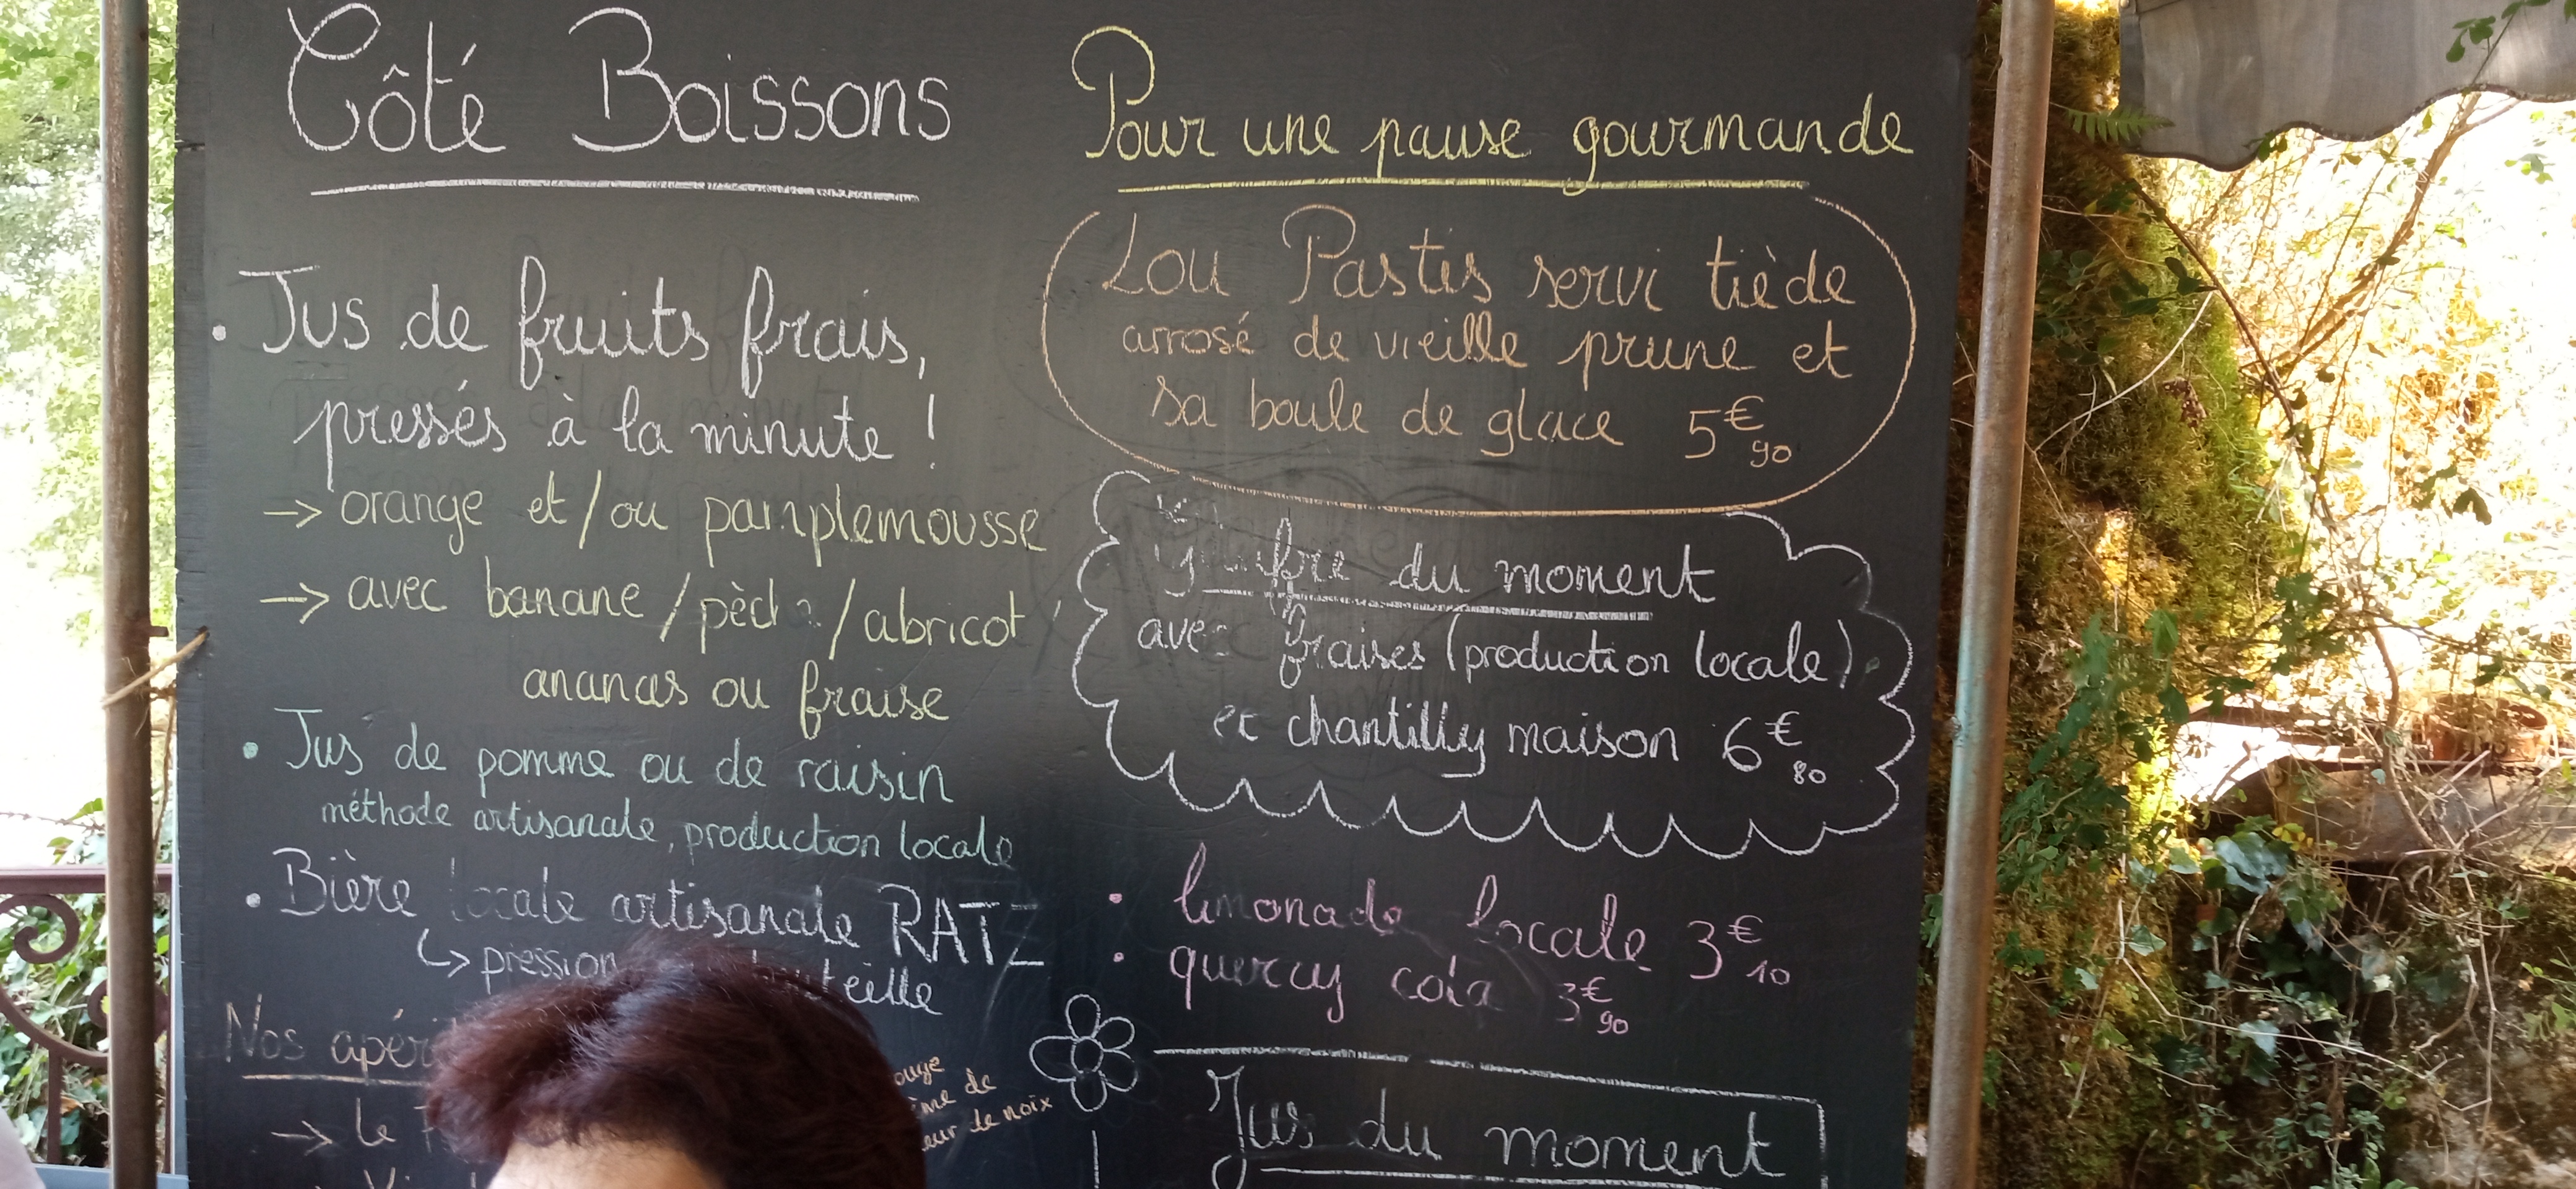 Côté Boissons
• Jus de fruits frais,
pressés à la minute !
→ orange et/ou pamplemousse
→ avec banane / pèche / abricot,
ananas ou fraise
• Jus de pomme ou de raisin
méthode artisanale, production locale
• Bière locale artisanale RATZ
↳ pression bouteille
Nos apér
→ Le
ouge
ème de
eur de noix
Pour une pause gourmande
Lou Pastis servi tiède
arrosé de vieille prune et
sa boule de glace 5€90
Gaufre du moment
avec fraises (production locale)
et chantilly maison 6€80
• limonade locale 3€10
• quercy cola 3€90
Jus du moment